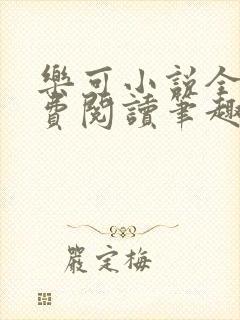 樂可小說全
費閱讀筆趣
嚴定梅